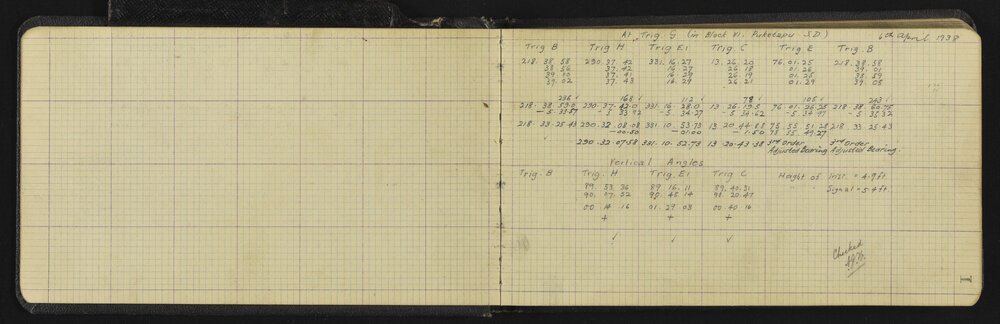 At Trig. G (in Block VI. Puketapu S.D.) 6th April 1938
Trig B Trig H Trig E1 Trig C Trig E Trig. B
218. 38. 58 290. 37. 42 331. 16. 27 13. 26. 20 76. 01. 25 218. 38. 58
38 56 37. 42 16. 27 26 18 01. 26 39. 01
39 10 37. 41 16 29 26 19 01. 25 38 59
39. 02 37. 43 16. 29 26 21 01. 29 39. 05
236 ✓ 168 ✓ 112 ✓ 78 ✓ 105 ✓ 243 ✓
218. 38 59.0 290. 37. 42.0 331. 16. 28.0 13 26. 19.5 76. 01. 26.25 218. 38. 60.75
- 5. 33.57 - 5 33.92 - 5 34.27 - 5 34.62 - 5 34.97 - 5 35.32
218. 33. 25.43 290. 32. 08.08 331. 10. 53.73 13 20. 44.88 75 55 51.28 218. 33 25.43
- 00.50 - 01.00 - 1.50 75 55 49.27
290. 32. 07.58 331. 10. 52.73 13. 20. 43.38 3rd Order 3rd Order
Adjusted Bearing Adjusted Bearing.
Vertical Angles
Trig. B Trig. H Trig. E1 Trig C Height of Inst. = 4.9 ft
89. 53 36 89 16. 11 89. 40. 31 " Signal = 5.4 ft
00 14 16 01. 29 03 00. 40. 16
+ + +
✓ ✓ ✓
Checked
1